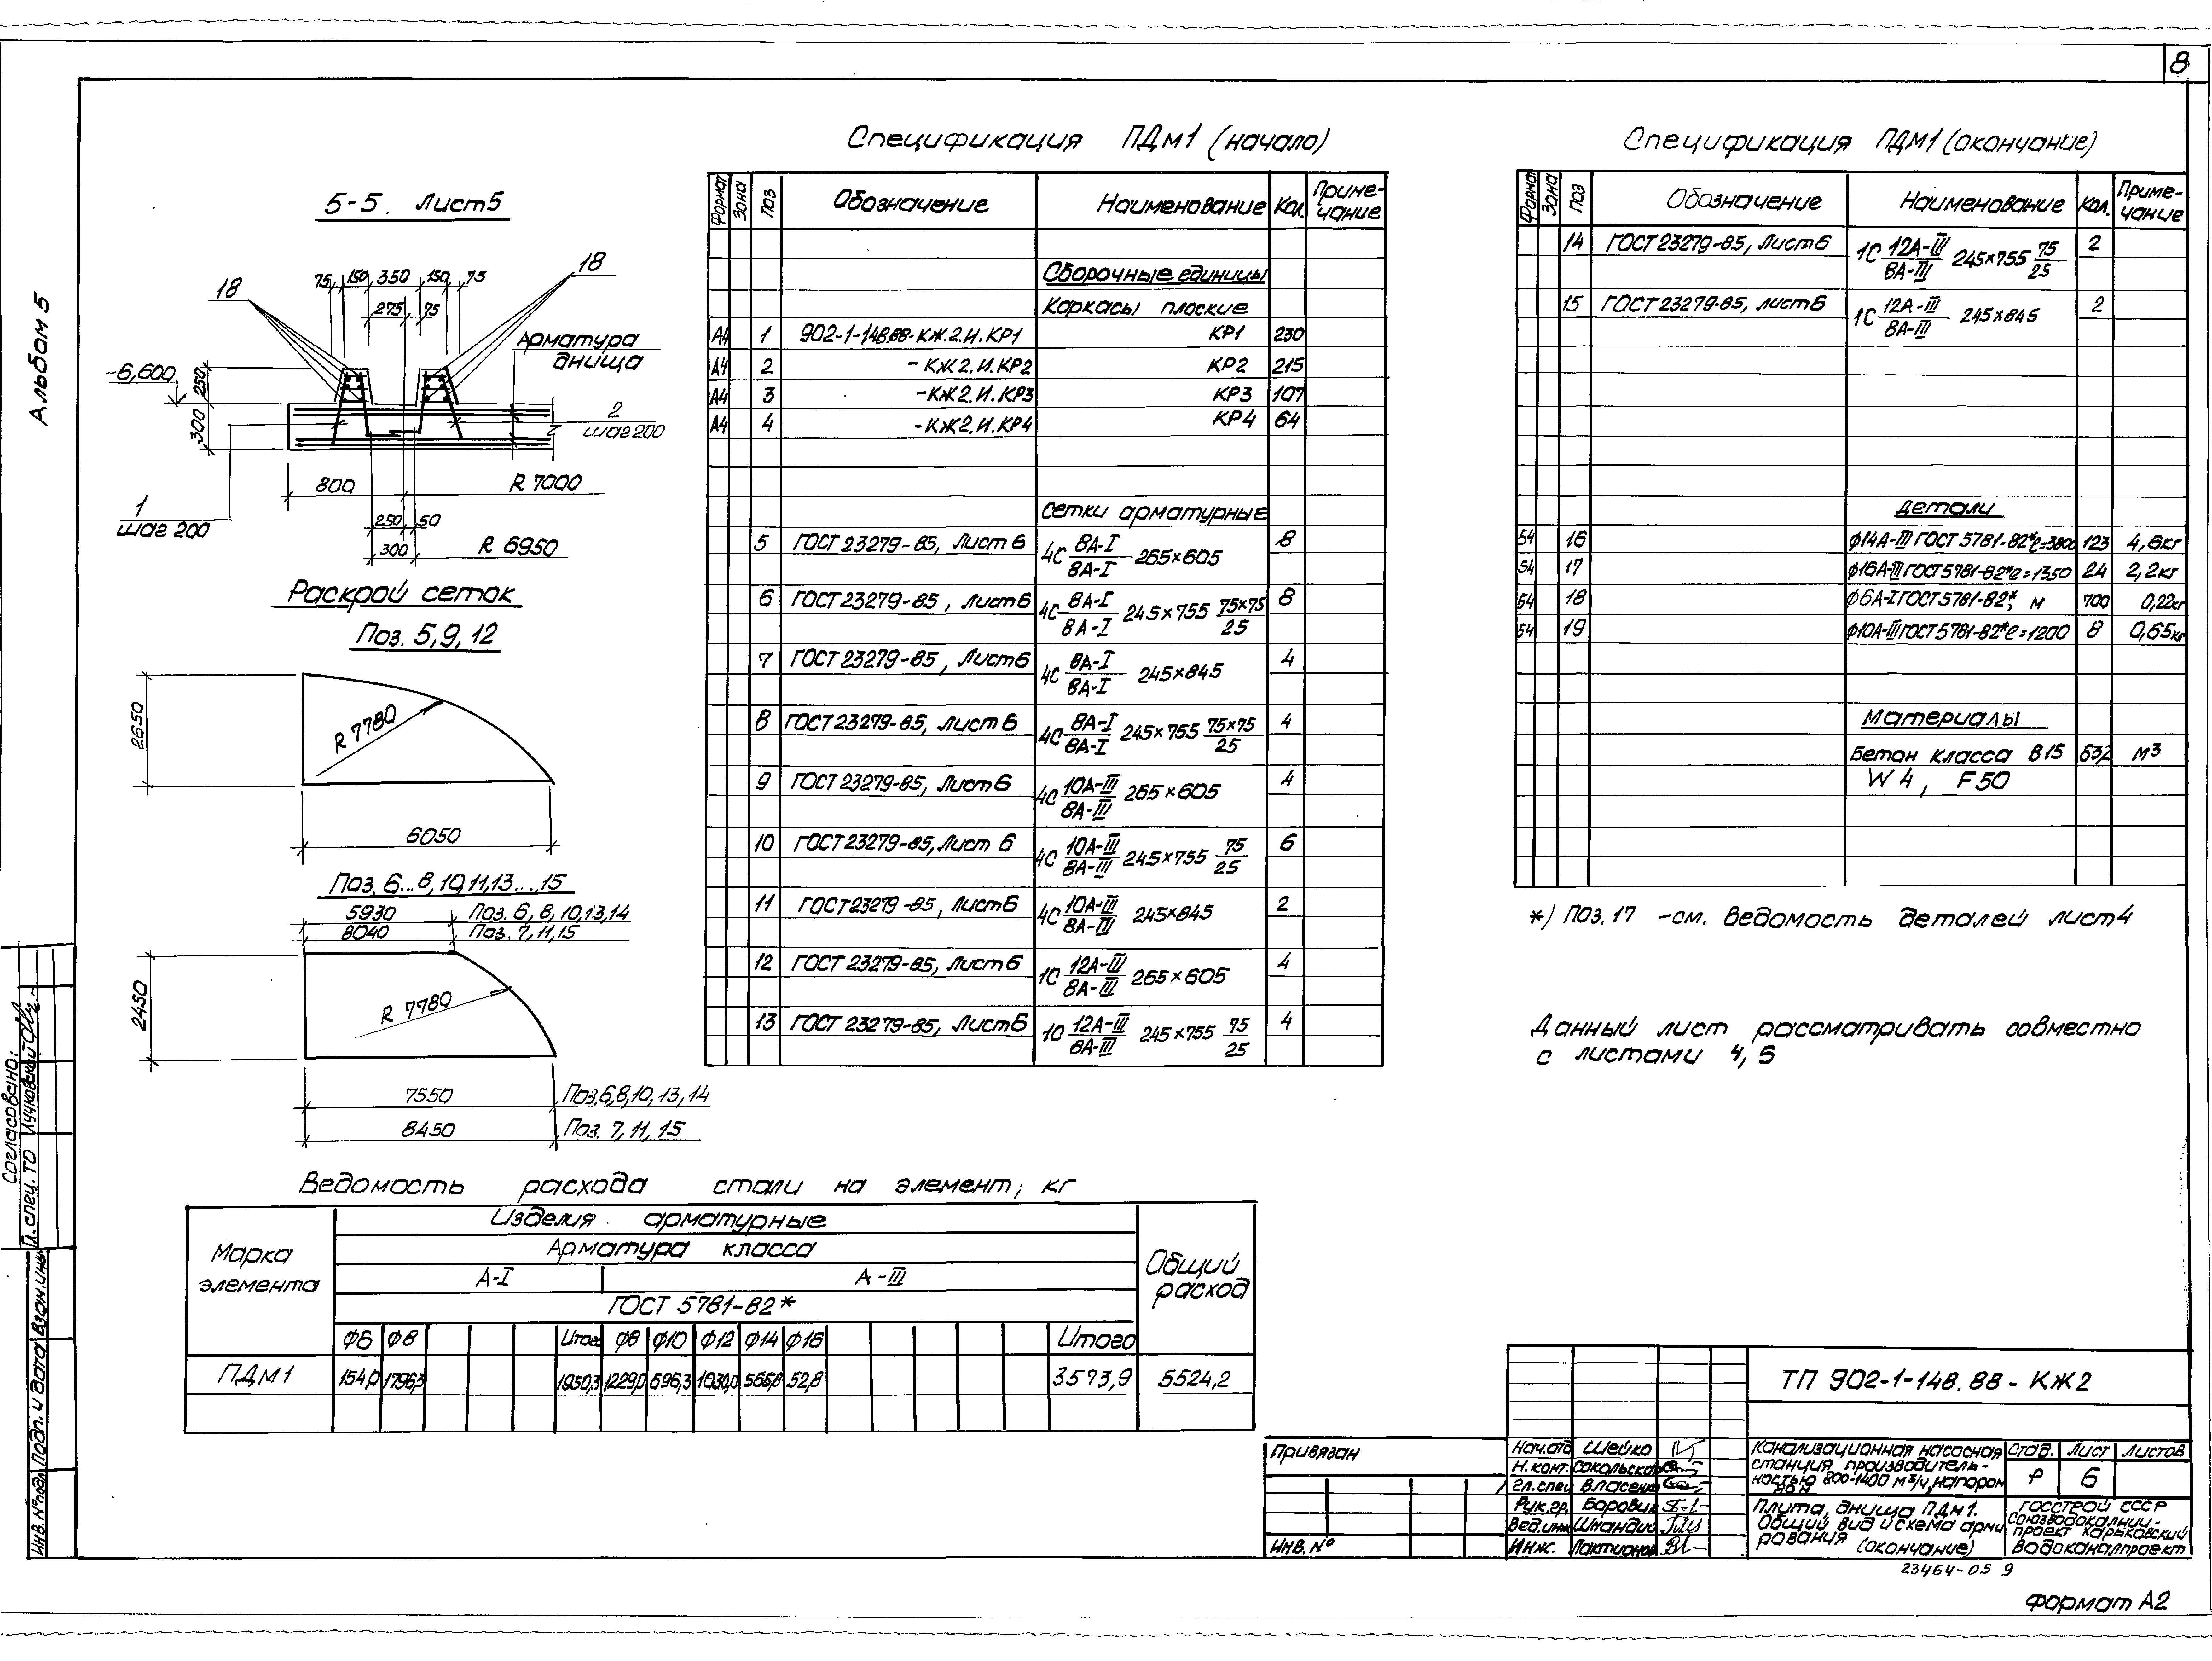 8
Альбом 5
5-5. Лист 5
18
75 150 350 150 75
18
275 75
Арматура
днища
-6,600
250
300
2
шаг 200
800
R 7000
1
шаг 200
250 50
300
R 6950
Раскрой сеток
Поз. 5,9,12
2650
R 7780
6050
Поз. 6...8,10,11,13...15
5930 Поз. 6,8,10,13,14
8040 Поз. 7,11,15
2450
R 7780
7550 Поз.6,8,10,13,14
8450 Поз. 7,11,15
Спецификация ПДм1 (начало)
Формат Зона Поз Обозначение Наименование Кол. Приме-
чание
Сборочные единицы
Каркасы плоские
А4 1 902-1-148.88-КЖ.2.И.КР1 КР1 230
А4 2 -КЖ2.И.КР2 КР2 215
А4 3 -КЖ2.И.КР3 КР3 107
А4 4 -КЖ2.И.КР4 КР4 64
Сетки арматурные
5 ГОСТ 23279-85, Лист 6 4С 8А-I/8А-I 265×605 8
6 ГОСТ 23279-85, Лист 6 4С 8А-I/8А-I 245×755 75×75/25 8
7 ГОСТ 23279-85, Лист 6 4С 8А-I/8А-I 245×845 4
8 ГОСТ 23279-85, Лист 6 4С 8А-I/8А-I 245×755 75×75/25 4
9 ГОСТ 23279-85, Лист 6 4С 10А-III/8А-III 265×605 4
10 ГОСТ 23279-85, Лист 6 4С 10А-III/8А-III 245×755 75/25 6
11 ГОСТ 23279-85, Лист 6 4С 10А-III/8А-III 245×845 2
12 ГОСТ 23279-85, Лист 6 1С 12А-III/8А-III 265×605 4
13 ГОСТ 23279-85, Лист 6 1С 12А-III/8А-III 245×755 75/25 4
Спецификация ПДм1 (окончание)
Формат Зона Поз Обозначение Наименование Кол. Приме-
чание
14 ГОСТ 23279-85, Лист 6 1С 12А-III/8А-III 245×755 75/25 2
15 ГОСТ 23279-85, Лист 6 1С 12А-III/8А-III 245×845 2
Детали
54 16 ф14А-III ГОСТ 5781-82* ℓ=3800 123 4,6кг
54 17 ф16А-III ГОСТ 5781-82* ℓ=1350 24 2,2кг
54 18 ф6А-I ГОСТ 5781-82*, м 700 0,22кг
54 19 ф10А-III ГОСТ 5781-82* ℓ=1200 8 0,65кг
Материалы
Бетон класса В15 63,2 м³
W4, F50
*) Поз.17 -см. ведомость деталей лист 4
Данный лист рассматривать совместно
с листами 4, 5
Ведомость расхода стали на элемент, кг
Марка
элемента
Изделия арматурные
Арматура класса
А-I А-III
ГОСТ 5781-82*
Общий
расход
ф6 ф8 Итого ф8 ф10 ф12 ф14 ф16 Итого
ПДм1 154,0 1796,3 1950,3 1229,0 696,3 1030,0 565,8 52,8 3573,9 5524,2
Согласовано:
Гл. спец. ТО Лучковский
Взам.инв.№
Подп. и дата
Инв.№подл
Привязан
Инв. №
Нач.отд Шейко
Н.конт. Сокольская
Гл.спец Власенко
Рук.гр. Боровик
Вед.инж Шкандий
Инж. Лактионов
ТП 902-1-148.88-КЖ2
Канализационная насосная
станция производитель-
ностью 800-1400 м³/ч, напором
Стад. Лист Листов
Р 6
Плита днища ПДм1.
Общий вид и схема арми
рования (окончание)
Госстрой СССР
Союзводоканалнии-
проект Харьковский
Водоканалпроект
23464-05 9
Формат А2